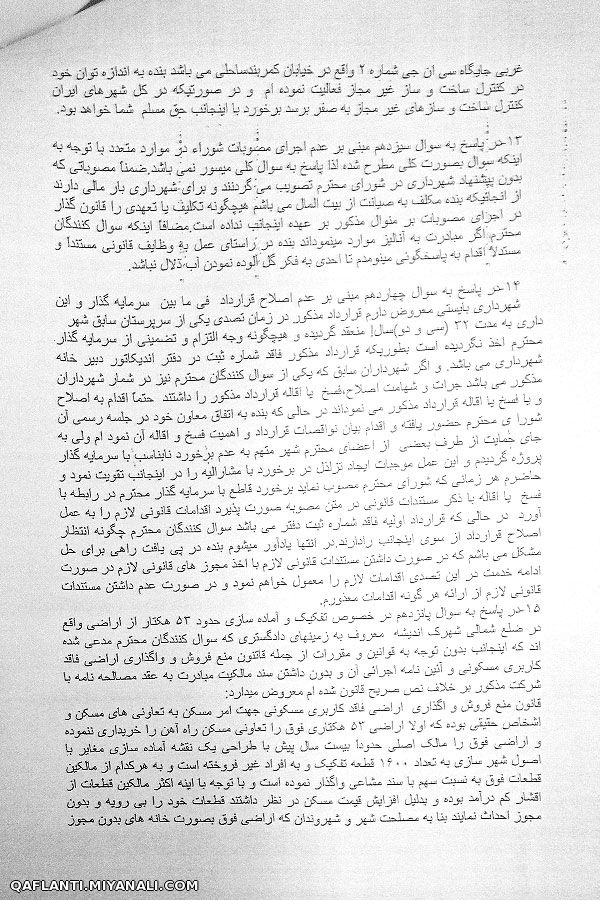 غربی جایگاه سی ان جی شماره ۲ واقع در خیابان کمربندساحلی می باشد بنده به اندازه توان خود
در کنترل ساخت و ساز غیر مجاز فعالیت نموده ام و در صورتیکه در کل شهرهای ایران
کنترل ساخت و سازهای غیر مجاز به صفر برسد برخورد با اینجانب حق مسلم شما خواهد بود.
۱۳-در پاسخ به سوال سیزدهم مبنی بر عدم اجرای مصوبات شوراء در موارد متعدد با توجه به
اینکه سوال بصورت کلی مطرح شده لذا پاسخ به سوال کلی میسور نمی باشد.ضمناً مصوباتی که
بدون پیشنهاد شهرداری در شورای محترم تصویب می گردند و برای شهرداری بار مالی دارند
از آنجائیکه بنده مکلف به صیانت از بیت المال می باشم هیچگونه تکلیف یا تعهدی را قانون گذار
در اجرای مصوبات بر منوال مذکور بر عهده اینجانب نداده است.مضافاً اینکه سوال کنندگان
محترم اگر مبادرت به آنالیز موارد مینمودند بنده در راستای عمل به وظایف قانونی مستنداً و
مستدلاً اقدام به پاسخگونی مینومدم تا احدی به فکر گل آلوده نمودن آب ذلال نباشد.
۱۴-در پاسخ به سوال چهاردهم مبنی بر عدم اصلاح قرارداد فی ما بین سرمایه گذار و این
شهرداری بایستی معروض دارم قرارداد مذکور در زمان تصدی یکی از سرپرستان سابق شهر
داری به مدت ۳۲ (سی و دو)سال منعقد گردیده و هیچگونه وجه التزام و تضمینی از سرمایه گذار
محترم اخذ نگردیده است بطوریکه قرارداد مذکور فاقد شماره ثبت در دفتر اندیکاتور دبیر خانه
شهرداری می باشد. و اگر شهرداران سابق که یکی از سوال کنندگان محترم نیز در شمار شهرداران
مذکور می باشد جرات و شهامت اصلاح،فسخ یا اقاله قرارداد مذکور را داشتند حتماً اقدام به اصلاح
و یا فسخ یا اقاله قرارداد مذکور می نمودند در حالی که بنده به اتفاق معاون خود در جلسه رسمی آن
شورا ی محترم حضور یافته و اقدام بیان نواقصات قرارداد و اهمیت فسخ و اقاله آن نمود ام ولی به
جای حمایت از طرف بعضی از اعضای محترم شهر متهم به عدم برخورد نامناسب با سرمایه گذار
پروژه گردیدم و این عمل موجبات ایجاد تزلذل در برخورد با مشارالیه را در اینجانب تقویت نمود و
حاضرم هر زمانی که شورای محترم مصوب نماید برخورد قاطع با سرمایه گذار محترم در رابطه با
فسخ یا اقاله با ذکر مستندات قانونی در متن مصوبه صورت پذیرد اقدامات قانونی لازم را به عمل
آورد در حالی که قرارداد اولیه فاقد شماره ثبت دفتر می باشد سوال کنندگان محترم چگونه انتظار
اصلاح قرارداد از سوی اینجانب رادارند.در انتها یادآور میشوم بنده در پی یافت راهی برای حل
مشکل می باشم که در صورت داشتن مستندات قانونی لازم با اخذ مجوز های قانونی لازم در صورت
ادامه خدمت در این تصدی اقدامات لازم را معمول خواهم نمود و در صورت عدم داشتن مستندات
قانونی لازم از ارائه هر گونه اقدامات معذورم.
۱۵-در پاسخ به سوال پانزدهم در خصوص تفکیک و آماده سازی حدود ۵۳ هکتار از اراضی واقع
در ضلع شمالی شهرک اندیشه معروف به زمینهای دادگستری که سوال کنندگان محترم مدعی شده
اند که اینجانب بدون توجه به قوانین و مقررات از جمله قاتنون منع فروش و واگذاری اراضی فاقد
کاربری مسکونی و آئین نامه اجرائی آن و بدون داشتن سند مالکیت مبادرت به عقد مصالحه نامه با
شرکت مذکور بر خلاف نص صریح قانون شده ام معروض میدارد:
قانون منع فروش و اگذاری اراضی فاقد کاربری مسکونی جهت امر مسکن به تعاونی های مسکن و
اشخاص حقیقی بوده که اولا اراضی ۵۳ هکتاری فوق را تعاونی مسکن راه آهن را خریداری ننموده
و اراضی فوق را مالک اصلی حدوداً بیست سال پیش با طراحی یک نقشه آماده سازی مغایر با
اصول شهر سازی به تعداد ۱۶۰۰ قطعه تفکیک و به افراد غیر فروخته است و به هرکدام از مالکین
قطعات فوق به نسبت سهم با سند مشاعی واگذار نموده است و با توجه با اینه اکثر مالکین قطعات از
اقشار کم درآمد بوده و بدلیل افزایش قیمت مسکن در نظر داشتند قطعات خود را بی رویه و بدون
مجوز احداث نمایند بنا به مصلحت شهر و شهروندان که اراضی فوق بصورت خانه های بدون مجوز
QAFLANTI.MIYANALI.COM